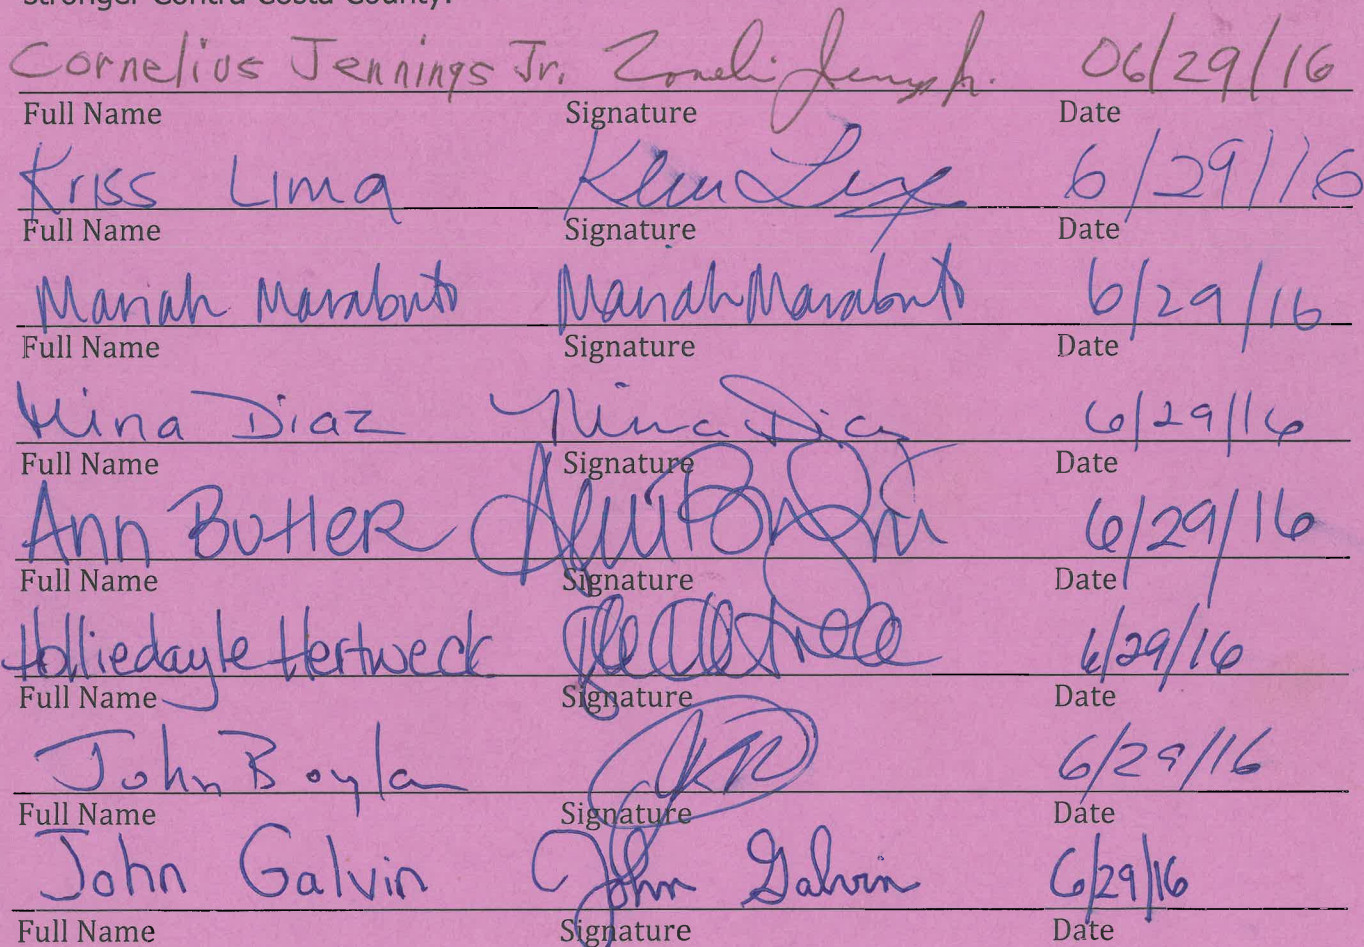 Stronger Contra Costa County.
Cornelius Jennings Jr. 06/29/16
Full Name Signature Date
Kriss Lima 6/29/16
Full Name Signature Date
Mariah Marabuto Mariah Marabuto 6/29/16
Full Name Signature Date
Nina Diaz Nina Diaz 6/29/16
Full Name Signature Date
Ann Butler 6/29/16
Full Name Signature Date
Holliedayle Hertweck 6/29/16
Full Name Signature Date
John Boylan 6/29/16
Full Name Signature Date
John Galvin John Galvin 6/29/16
Full Name Signature Date